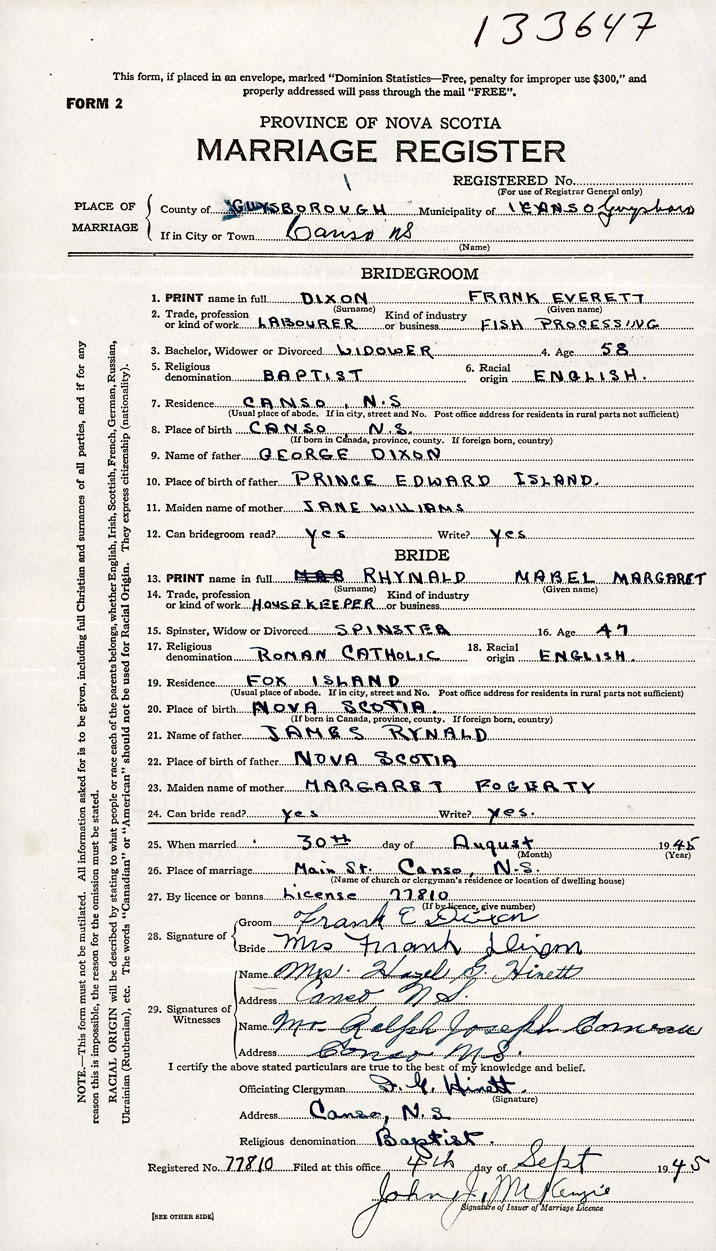 133647
This form, if placed in an envelope, marked "Dominion Statistics—Free, penalty for improper use $300," and
properly addressed will pass through the mail "FREE".
FORM 2
PROVINCE OF NOVA SCOTIA
MARRIAGE REGISTER
REGISTERED No.
(For use of Registrar General only)
PLACE OF MARRIAGE
County of GUYSBOROUGH Municipality of CANSO Guysboro
If in City or Town Canso NS
(Name)
BRIDEGROOM
1. PRINT name in full DIXON FRANK EVERETT
(Surname) (Given name)
2. Trade, profession or kind of work LABOURER Kind of industry or business FISH PROCESSING
3. Bachelor, Widower or Divorced WIDOWER 4. Age 58
5. Religious denomination BAPTIST 6. Racial origin ENGLISH.
7. Residence CANSO, N.S
(Usual place of abode. If in city, street and No. Post office address for residents in rural parts not sufficient)
8. Place of birth CANSO N.S.
(If born in Canada, province, county. If foreign born, country)
9. Name of father GEORGE DIXON
10. Place of birth of father PRINCE EDWARD ISLAND.
11. Maiden name of mother JANE WILLIAMS
12. Can bridegroom read? yes Write? yes
BRIDE
13. PRINT name in full RHYNALD MABEL MARGARET
(Surname) (Given name)
14. Trade, profession or kind of work HOUSEKEEPER Kind of industry or business
15. Spinster, Widow or Divorced SPINSTER 16. Age 47
17. Religious denomination ROMAN CATHOLIC 18. Racial origin ENGLISH.
19. Residence FOX ISLAND
(Usual place of abode. If in city, street and No. Post office address for residents in rural parts not sufficient)
20. Place of birth NOVA SCOTIA.
(If born in Canada, province, county. If foreign born, country)
21. Name of father JAMES RYNALD
22. Place of birth of father NOVA SCOTIA
23. Maiden name of mother MARGARET FOGERTY
24. Can bride read? yes Write? yes.
25. When married 30th day of August 1945
(Month) (Year)
26. Place of marriage Main St. Canso, N.S.
(Name of church or clergyman's residence or location of dwelling house)
27. By licence or banns License 77810
(If by licence, give number)
28. Signature of
Groom Frank E Dixon
Bride Mrs Frank Dixon
29. Signatures of Witnesses
Name Mrs. Hazel G. Hinett
Address Canso N.S.
Name Mr Ralph Joseph Comeau
Address Canso N.S.
I certify the above stated particulars are true to the best of my knowledge and belief.
Officiating Clergyman F. G. Hinett.
(Signature)
Address Canso, N.S
Religious denomination Baptist.
Registered No. 77810 Filed at this office 4th day of Sept 1945
John J. McKenzie
Signature of Issuer of Marriage Licence
[SEE OTHER SIDE]
NOTE.—This form must not be mutilated. All information asked for is to be given, including full Christian and surnames of all parties, and if for any
reason this is impossible, the reason for the omission must be stated.
RACIAL ORIGIN will be described by stating to what people or race each of the parents belongs, whether English, Irish, Scottish, French, German, Russian,
Ukrainian (Ruthenian), etc. The words "Canadian" or "American" should not be used for Racial Origin. They express citizenship (nationality).